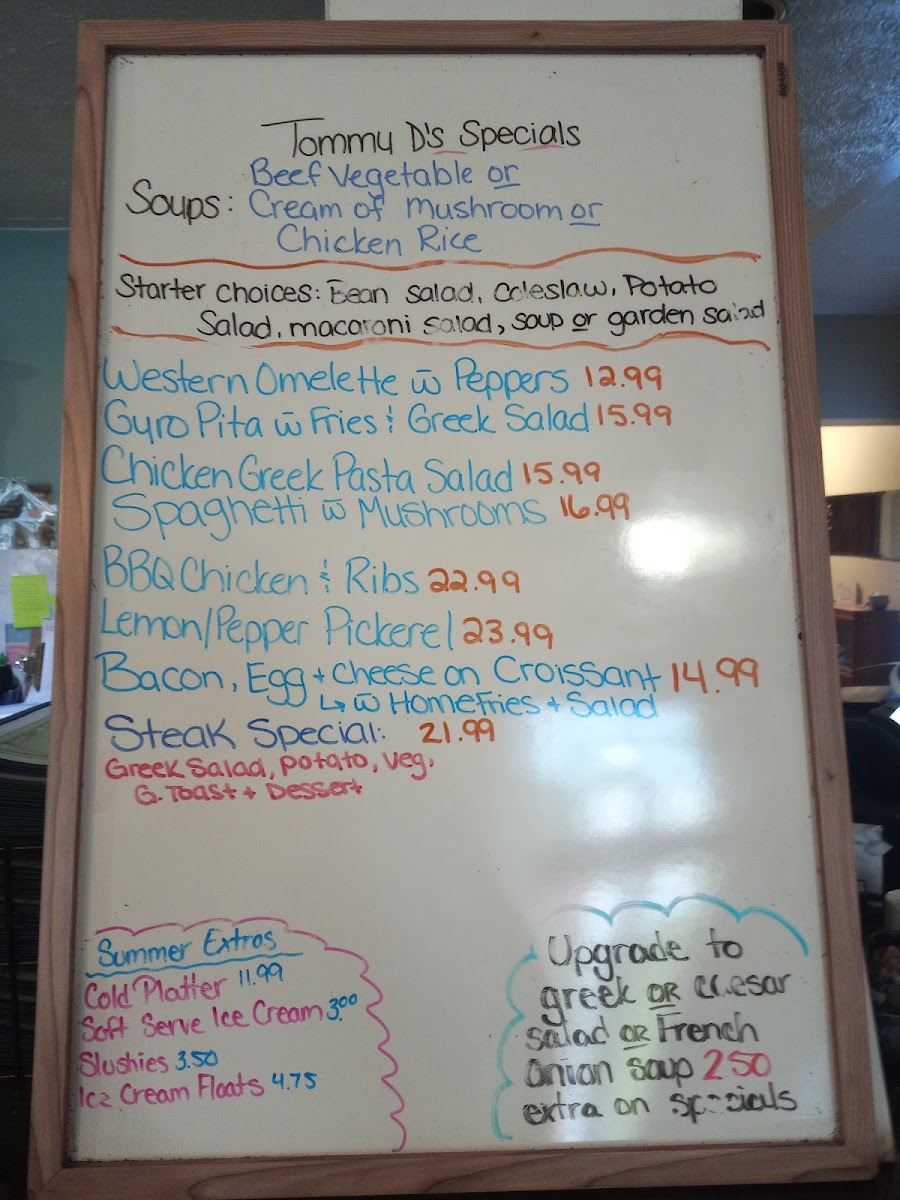 Tommy D's Specials
Soups: Beef Vegetable or
Cream of Mushroom or
Chicken Rice
Starter choices: Bean salad, Coleslaw, Potato
Salad, macaroni salad, soup or garden salad
Western Omelette w̄ Peppers 12.99
Gyro Pita w̄ Fries & Greek Salad 15.99
Chicken Greek Pasta Salad 15.99
Spaghetti w̄ Mushrooms 16.99
BBQ Chicken & Ribs 22.99
Lemon/Pepper Pickerel 23.99
Bacon, Egg + Cheese on Croissant 14.99
↳ w̄ Homefries + Salad
Steak Special: 21.99
Greek Salad, potato, veg,
G. Toast + Dessert
Summer Extras
Cold Platter 11.99
Soft Serve Ice Cream 3.00
Slushies 3.50
Ice Cream Floats 4.75
Upgrade to
greek OR caesar
salad OR French
onion soup 2.50
extra on specials